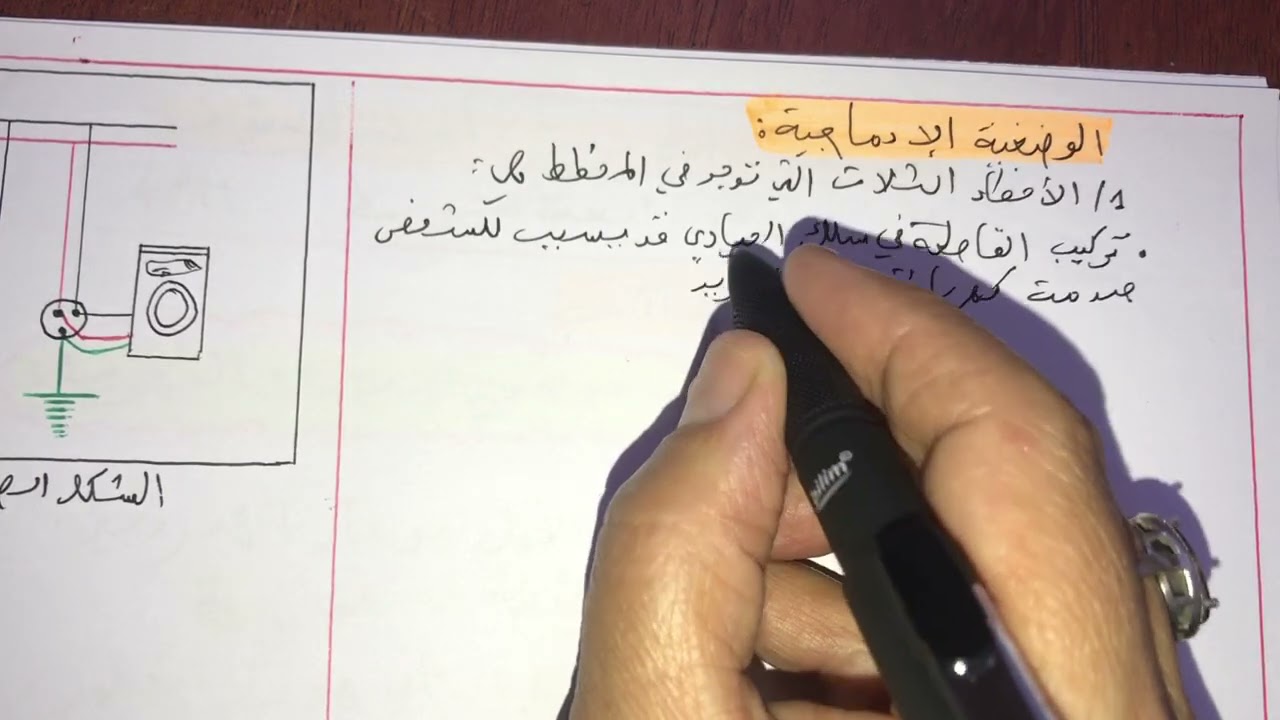 الوضعية الإدماجية:
1/ الأخطاء الثلاث التي توجد في المخطط هي:
. تركيب القاطعة في سلك الحيادي قد يسبب للشخص
صدمة
الشكل
ilim